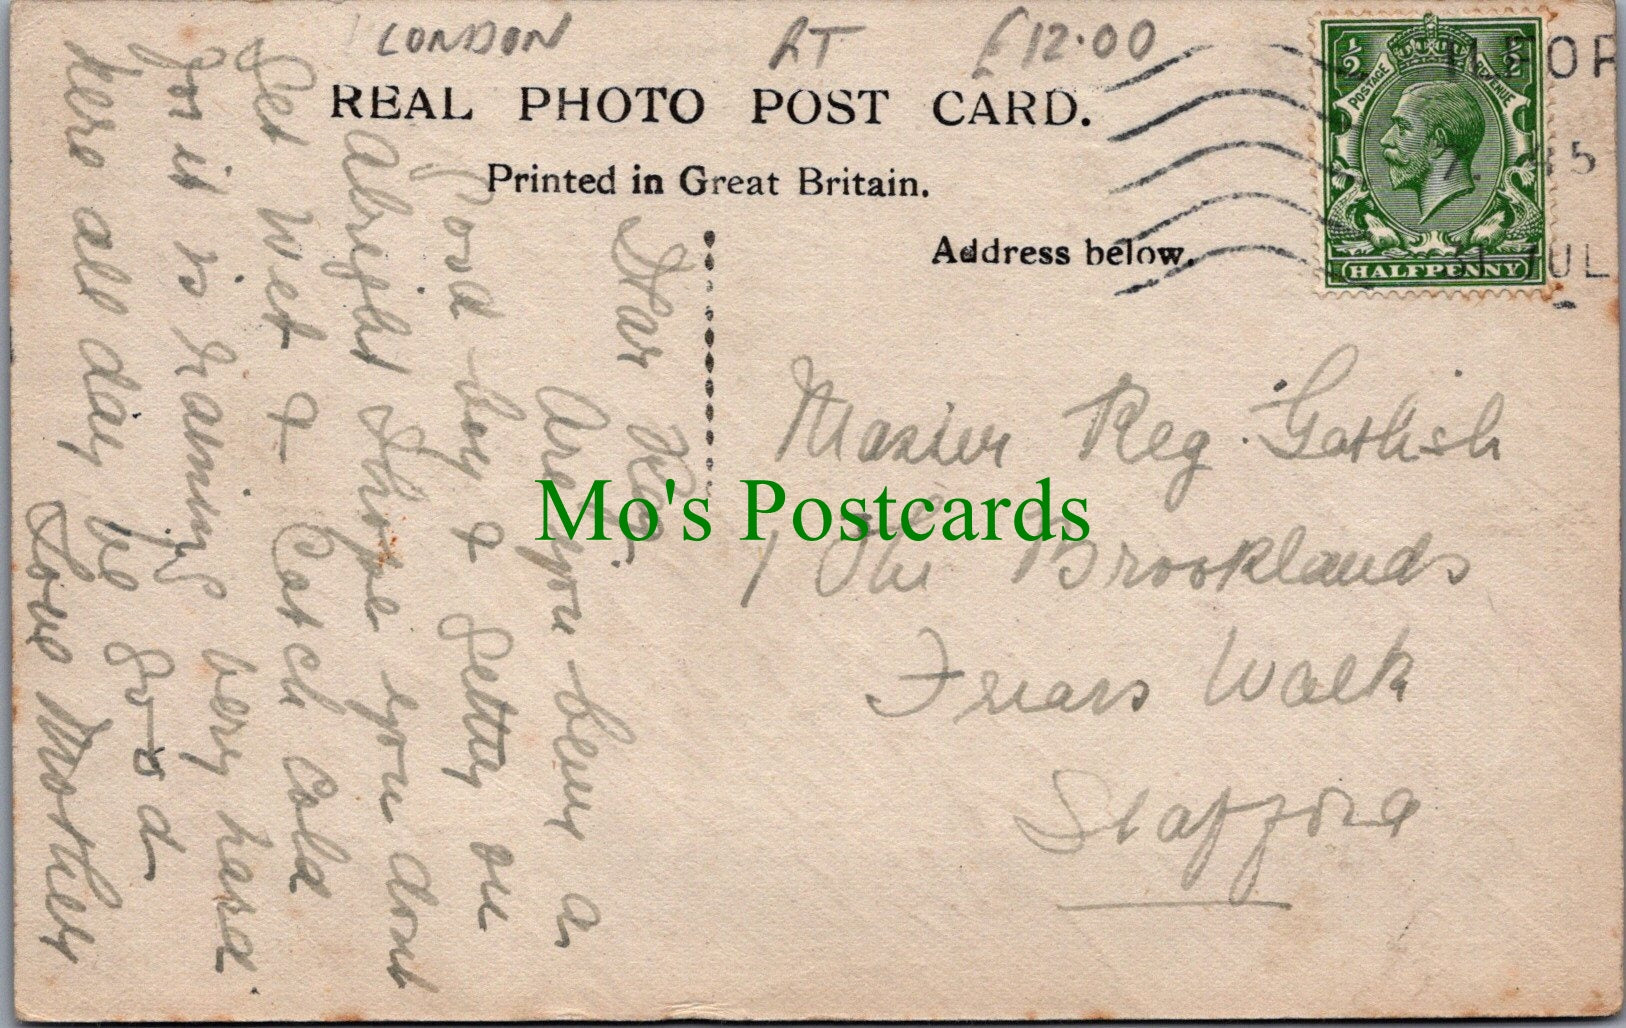 LONDON AT £12.00
REAL PHOTO POST CARD.
Printed in Great Britain.
Address below.
½ ½
POSTAGE REVENUE
HALFPENNY
45
31 JUL
Dear Reg.
Are you being a
good boy & getting on
Alright I hope you dont
Get Wet & Catch Cold
for it is raining very hard
here all day be good
Love Mother
Master Reg.
1 The Brooklands
Friars Walk
Stafford
Mo's Postcards